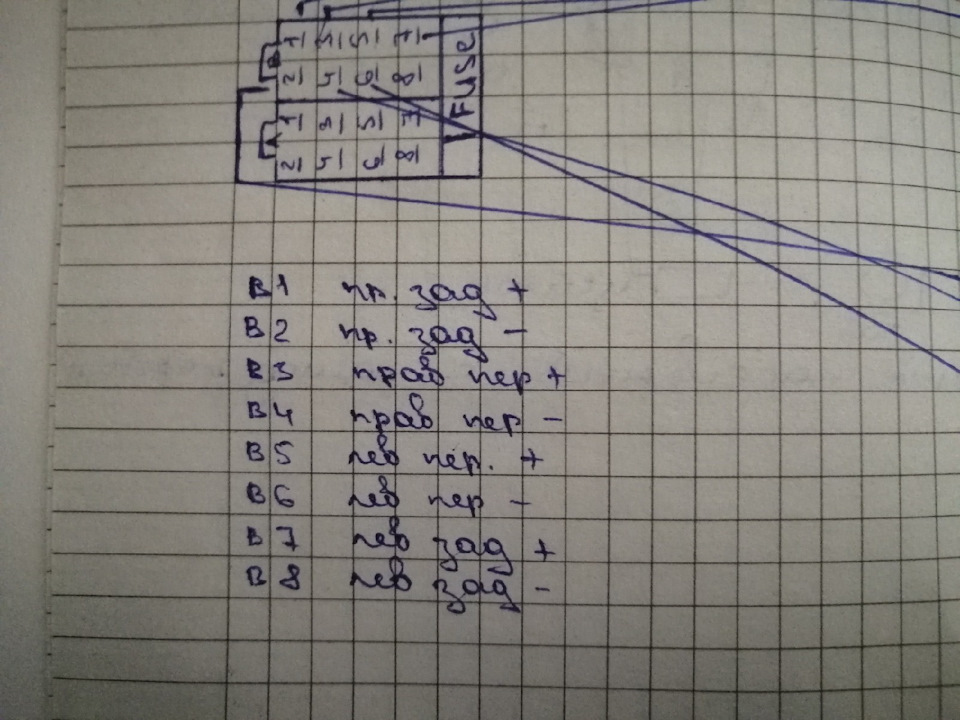 1 3 5 7
B
2 4 6 8
FUSE
1 3 5 7
A
2 4 6 8
B1 пр. зад +
B2 пр. зад -
B3 прав пер +
B4 прав пер -
B5 лев пер. +
B6 лев пер -
B7 лев зад +
B8 лев зад -